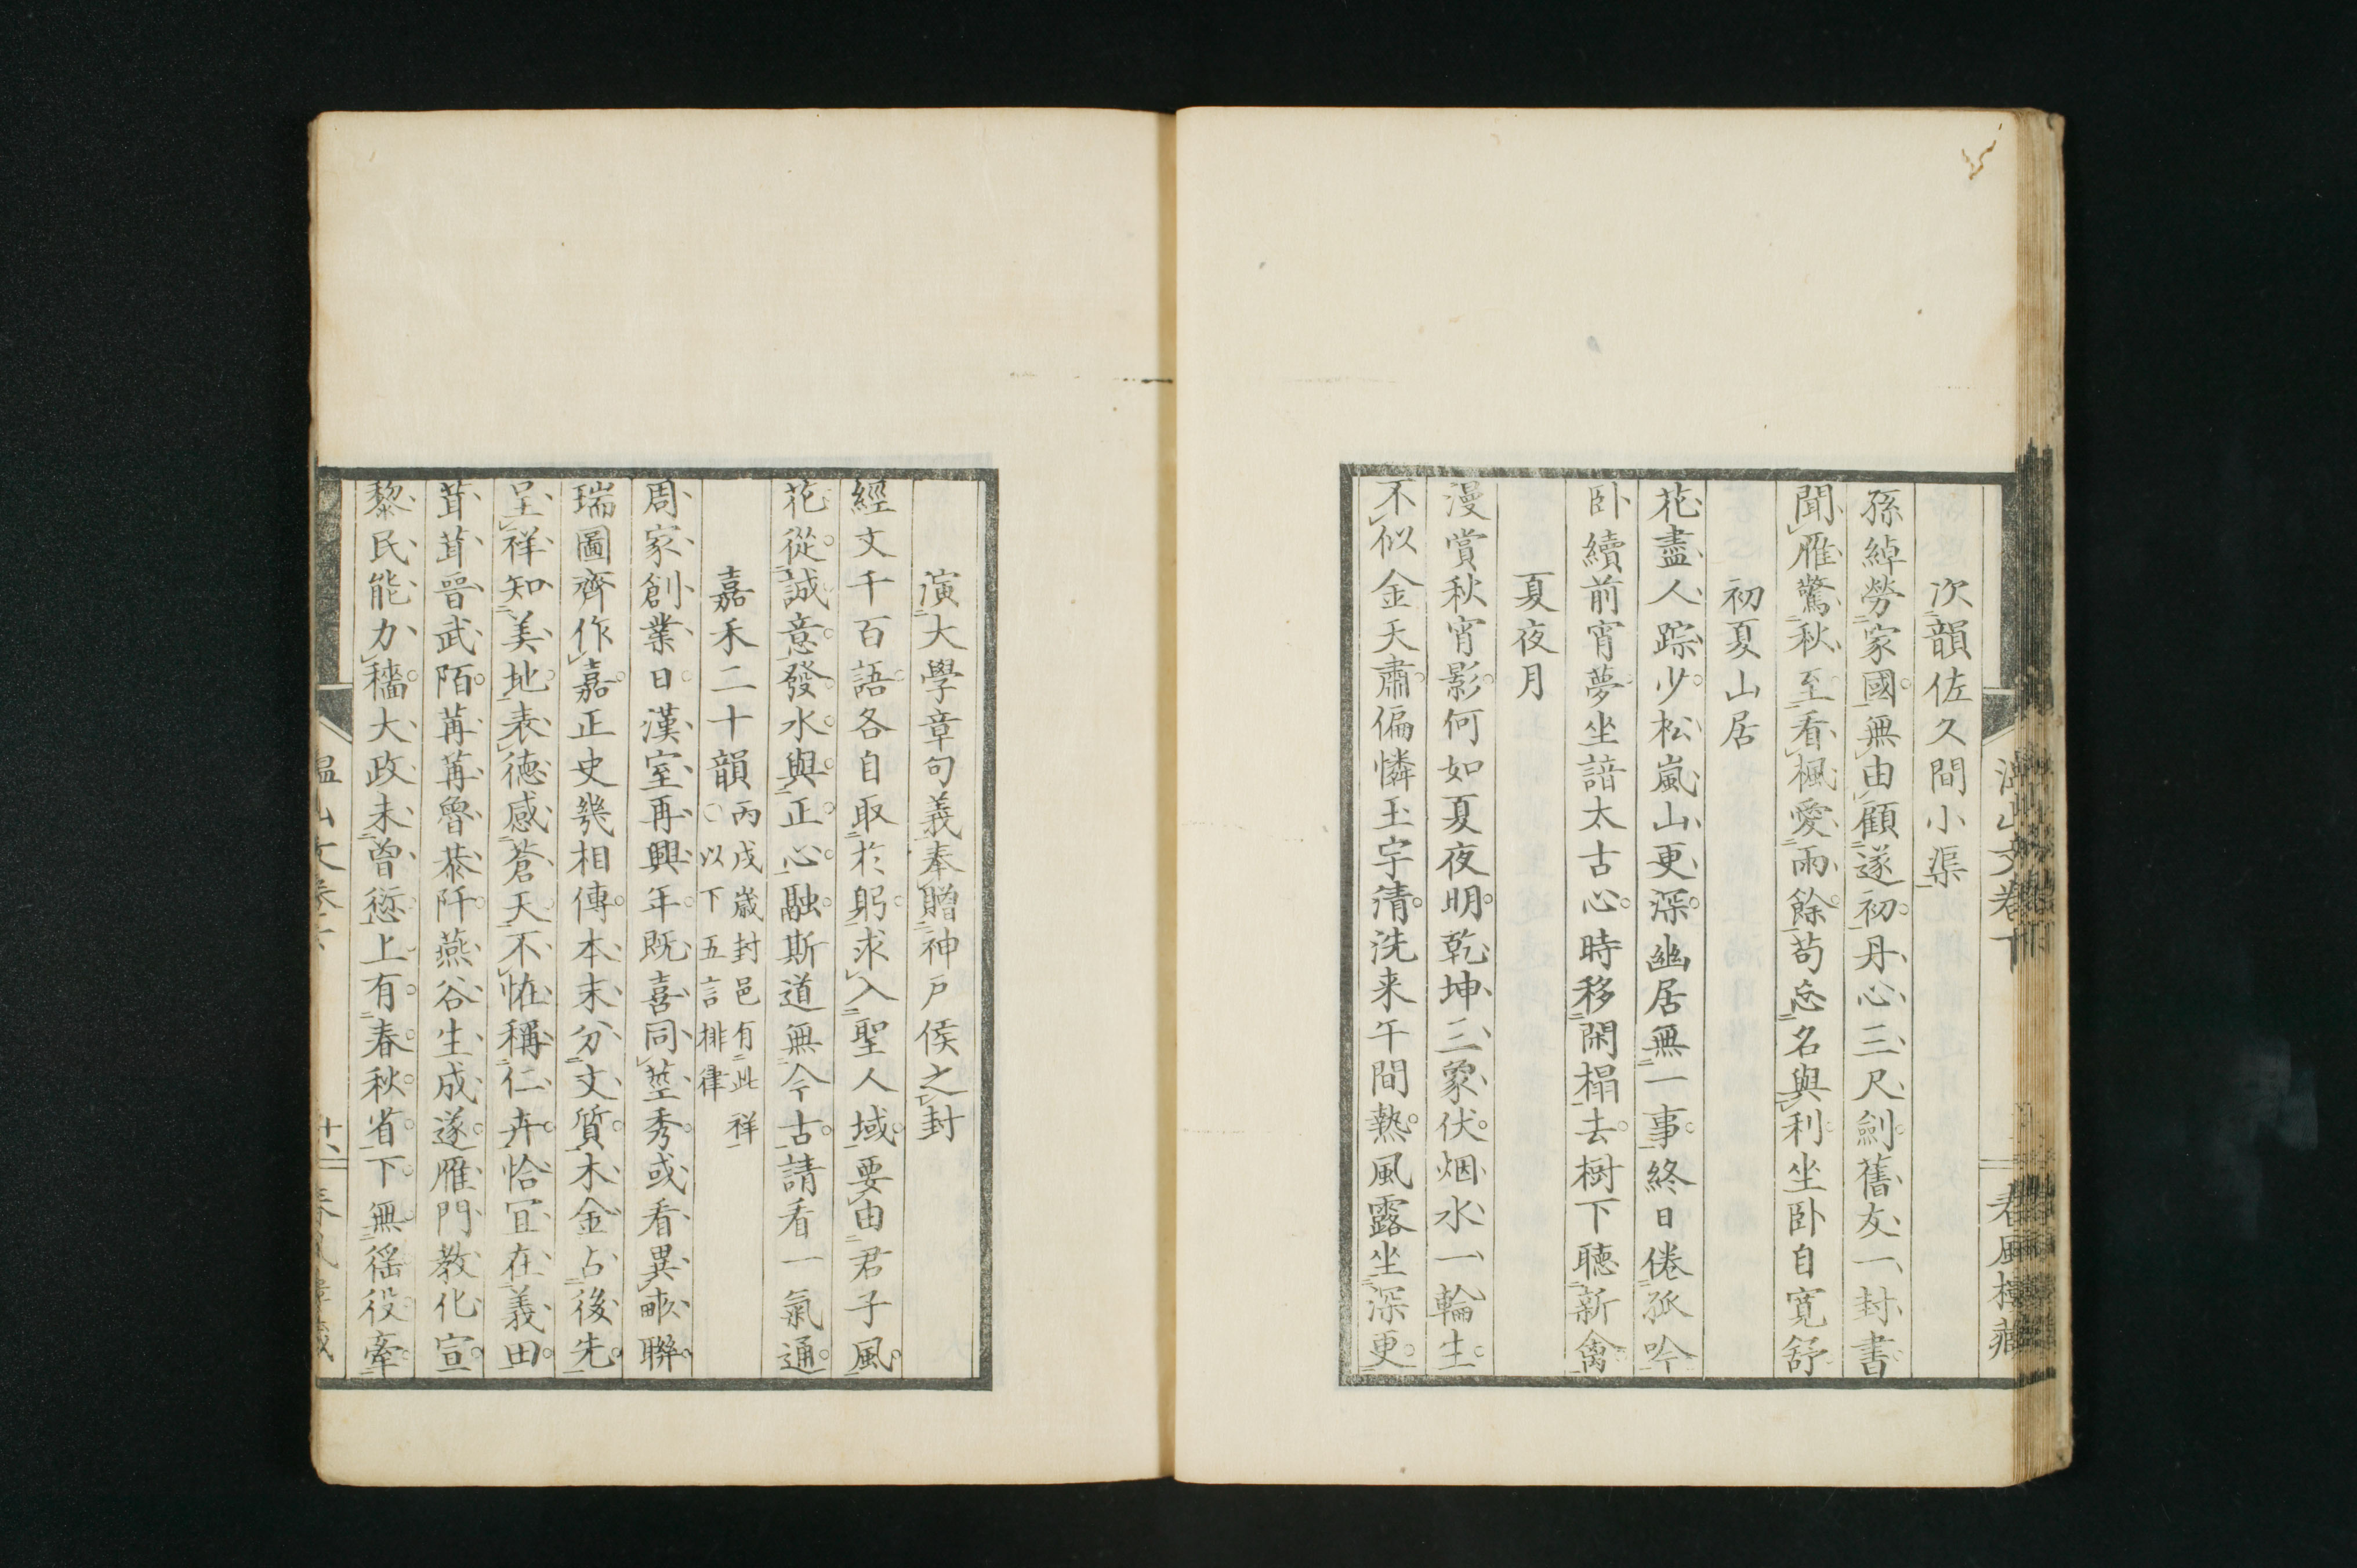 次韻佐久間小渠
孫綽勞家國無由顧遂初丹心三尺劍舊友一封書
聞雁驚秋至看楓愛雨餘苟忘名與利坐臥自寬舒
初夏山居
花盡人踪少松嵐山更深幽居無一事終日倦孤吟
臥續前宵夢坐諳太古心時移閑榻去樹下聽新禽
夏夜月
漫賞秋宵影何如夏夜明乾坤三象伏烟水一輪生
不似金天肅偏憐玉宇清洗来午間熱風露坐深更
演大學章句義奉贈神戶侯之封
經文千百語各自取於躬求入聖人域要由君子風
花從誠意發水與正心融斯道無今古請看一氣通
嘉禾二十韻
丙戌歲封邑有此祥
○以下五言排律
周家創業日漢室再興年既喜同莖秀或看異畝聯
瑞圖齊作嘉正史幾相傳本末分文質木金占後先
呈祥知美地表德感蒼天不恠稱仁卉恰宜在義田
茸茸晉武陌苒苒魯恭阡燕谷生成遂雁門教化宣
黎民能力穡大政未曾愆上有春秋省下無徭役牽